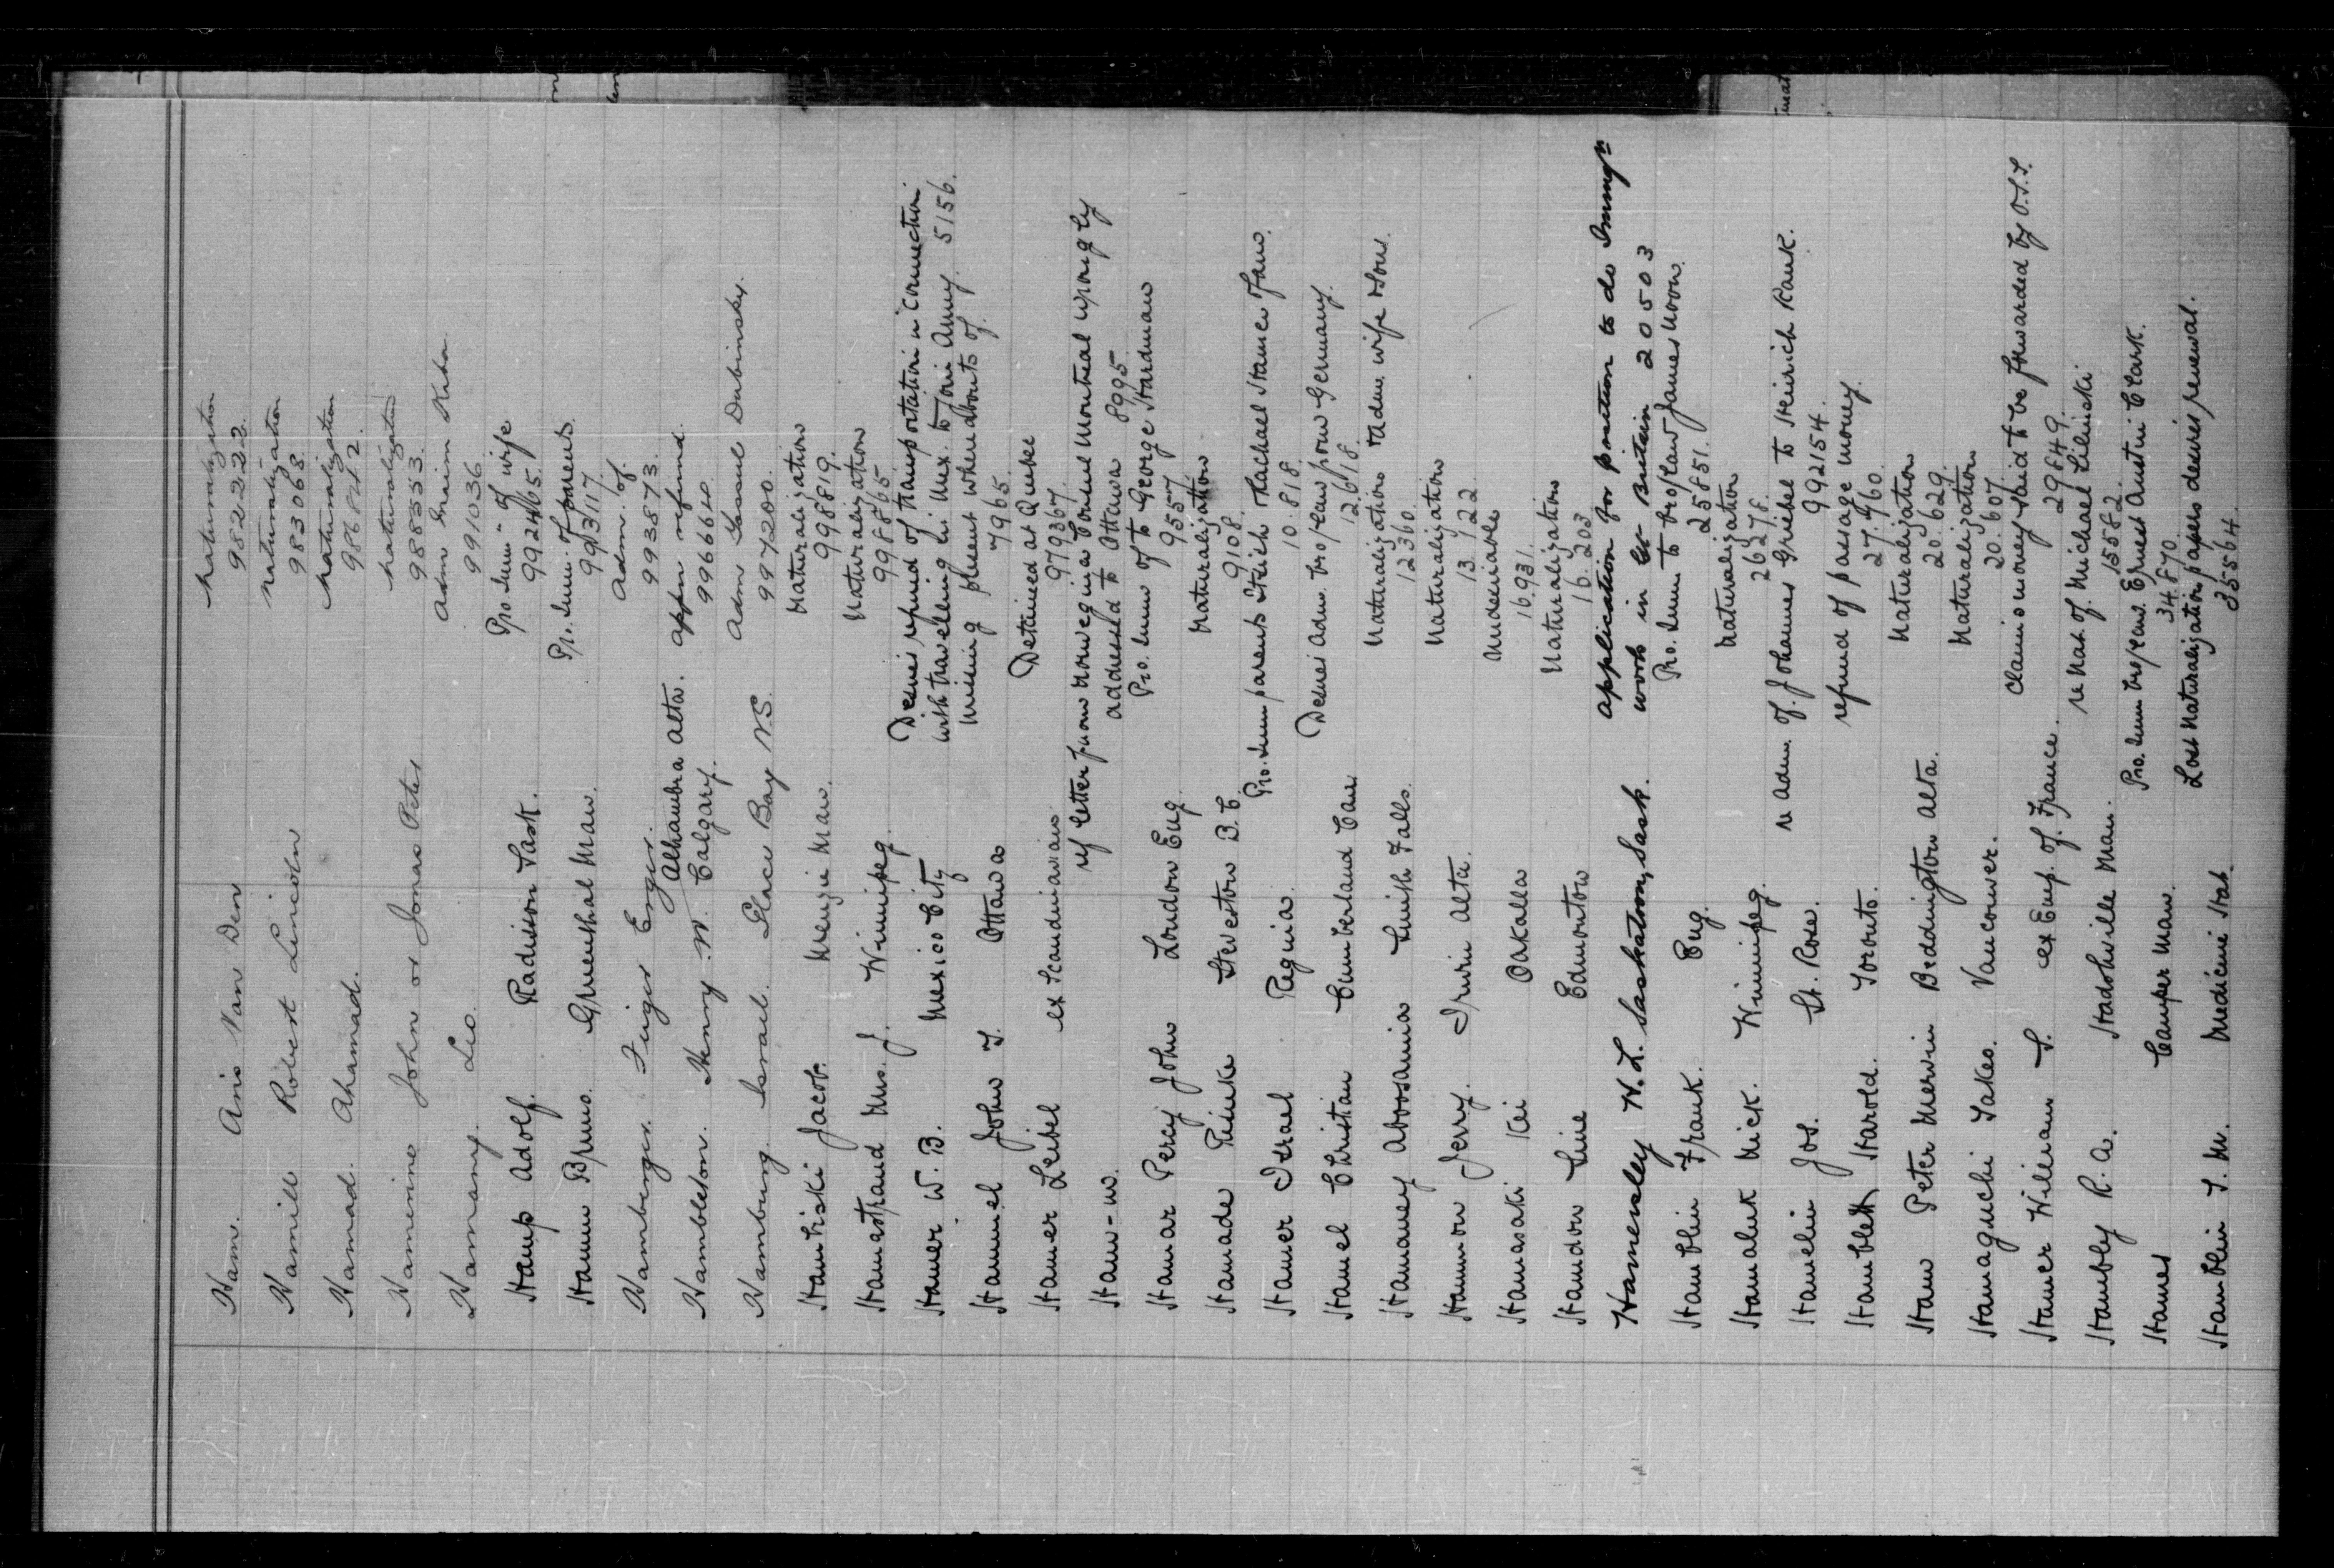 Ham. Aris Van Den Naturalization
982222.
Hamill Robert Lincoln Naturalization
983068.
Hamad. Ahamad. Naturalization
986842.
Hamerino John or Jonas Peter Naturalization
988353.
Hamany. Leo. Adm Ibraim Keba.
991036
Hamp Adolf. Radisson Sask. Pro. Imm- of wife
992465.
Hamm Bruno. Gruenthal Man. Pro. Imm. of parents.
993117.
Hamberger. Feiger Enger. Adm. of.
993873.
Hambleton. Henry W. Alhambra Alta. Calgary. appn refund.
996640.
Hamburg. Israel. Glace Bay N.S. Adm Samuel Dubinsky.
997200.
Hamliski Jacob. Menzie Man. Naturalization
998819.
Hamastrand Mrs. J. Winnipeg. Naturalization
998865
Hamer W. B. Mexico City Desires refund of transportation in connection
with travelling in Mex. to join Army. 5156.
Hammel John T. Ottawa missing present whereabouts of.
7965.
Hamer Leibel ex Scandinavian Detained at Quebec
979367.
Ham-w. re letter from Norwegian Consul Montreal wrongly
addressed to Ottawa 8995.
Hamar Percy John London Eng. Pro. Imm of to George Hardman
9557
Hamade Reinke Steveston B.C. Naturalization
9108.
Hamer Israel Regina. Pro. Imm parents Itzich & Rachael Hamer & fam.
10.818.
Hamel Christian Cumberland Can. Desires Adm. bro/law from Germany.
12618.
Hamaney Aboosamia Smith Falls. Naturalization & adm. wife & sons.
12360.
Hammon Jerry. Irwin Alta. Naturalization
13.122.
Hamasaki Kei Oakalla Undesirable
16931.
Hamdon Sine Edmonton Naturalization
16.203
Hamensley H.L. Saskatoon, Sask. application for position to do Immgn
work in Gt. Britain 20503
Hamblin Frank. Eng. Pro. Imm to bro/law James Moon.
25851.
Hamaluk Mick. Winnipeg. Naturalization
26278.
Hamelin Jos. St. Rose. re adm. of. Johannes Grebel to Heinrich Rauk.
992154.
Hamblett Harold. Toronto. refund of passage money.
27.460.
Ham Peter Mervin Beddington Alta. Naturalization
20.629.
Hamaguchi Sakeo. Vancouver. Naturalization
20.607.
Hamer William S. ex Emp. of. France. Claims money paid to be forwarded by O.S.S.
29849.
Hambly R. A. Hadashville Man. re Nat. of. Michael Silinski
15582.
Hames Camper Man. Pro. Imm bro/law. Ernest Austin Clark.
34.870
Hamblin T. M. Medicine Hat. Lost Naturalization papers desires renewal.
35564.